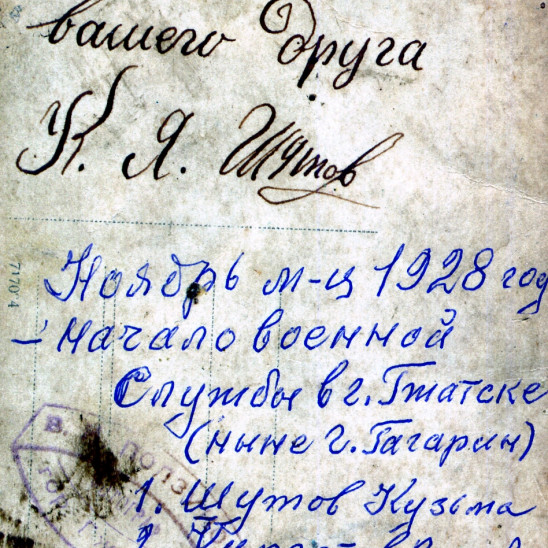 вашего друга
К. Я. Шутов
Ноябрь м-ц 1928 год
– начало военной
службы в г. Гжатске
(ныне г. Гагарин)
1. Шутов Кузьма
2.
71704